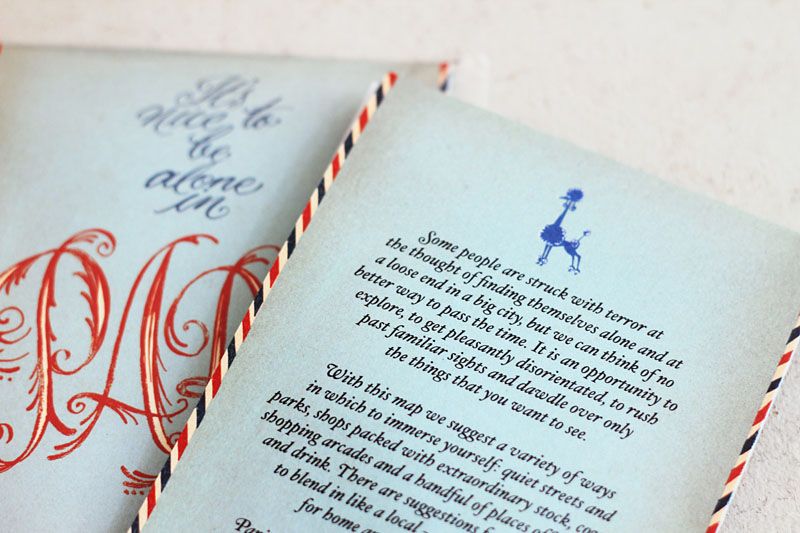 It's
nice to
be
alone
in
PAR
Some people are struck with terror at
the thought of finding themselves alone and at
a loose end in a big city, but we can think of no
better way to pass the time. It is an opportunity to
explore, to get pleasantly disorientated, to rush
past familiar sights and dawdle over only
the things that you want to see.
With this map we suggest a variety of ways
in which to immerse yourself: quiet streets and
parks, shops packed with extraordinary stock,
shopping arcades and a handful of places
and drink. There are suggestions
to blend in like a local
for home